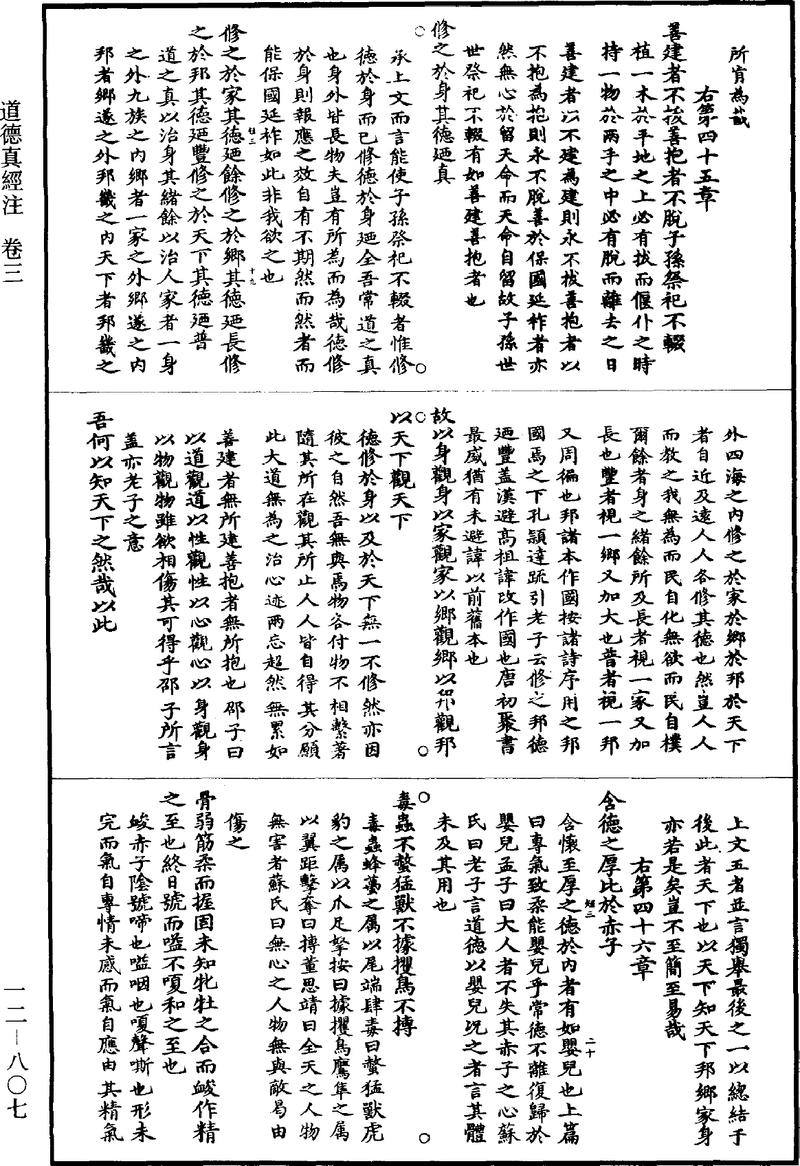 所官為哉
右第四十五章
善建者不拔善抱者不脫子孫祭祀不輟
植一木於平地之上必有拔而偃仆之時
持一物於兩手之中必有脫而離去之日
善建者以不建為建則永不拔善抱者以
不抱為抱則永不脫善於保國延祚者亦
然無心於留天命而天命自留故子孫世
世祭祀不輟有如善建善抱者也
修之於身其德廼真
承上文而言能使子孫祭祀不輟者惟修
德於身而已修德於身廼全吾常道之真
也身外皆長物夫豈有所為而為哉德修
於身則報應之效自有不期然而然者而
能保國延祚如此非我欲之也
修之於家其德廼餘修之於鄉其德廼長修
之於邦其德廼豐修之於天下其德廼普
道之真以治身其緒餘以治人家者一身
之外九族之內鄉者一家之外鄉遂之內
邦者鄉遂之外邦畿之內天下者邦畿之
外四海之內修之於家於鄉於邦於天下
者自近及遠人人各修其德也然豈人人
而教之我無為而民自化無欲而民自樸
爾餘者身之緒餘所及長者視一家又加
長也豐者視一鄉又加大也普者視一邦
又周徧也邦諸本作國按諸詩序用之邦
國焉之下孔頴達疏引老子云修之邦德
廼豐蓋漢避高祖諱改作國也唐初聚書
最盛猶有未避諱以前舊本也
故以身觀身以家觀家以鄉觀鄉以邦觀邦
以天下觀天下
德修於身以及於天下無一不修然亦因
彼之自然吾無與焉物各付物不相繫著
隨其所在觀其所止人人皆自得其分願
此大道無為之治心迹兩忘超然無累如
善建者無所建善抱者無所抱也邵子曰
以道觀道以性觀性以心觀心以身觀身
以物觀物雖欲相傷其可得乎邵子所言
蓋亦老子之意
吾何以知天下之然哉以此
上文五者並言獨舉最後之一以總結于
後此者天下也以天下知天下邦鄉家身
亦若是矣豈不至簡至易哉
右第四十六章
含德之厚比於赤子
含懷至厚之德於內者有如嬰兒也上篇
曰專氣致柔能嬰兒乎常德不離復歸於
嬰兒孟子曰大人者不失其赤子之心蘇
氏曰老子言道德以嬰兒況之者言其體
未及其用也
毒蟲不螫猛獸不據攫鳥不搏
毒蟲蜂蠆之屬以尾端肆毒曰螫猛獸虎
豹之屬以爪足拏按曰據攫鳥鷹隼之屬
以翼距擊奪曰搏董思靖曰全天之人物
無害者蘇氏曰無心之人物無與敵曷由
傷之
骨弱筋柔而握固未知牝牡之合而峻作精
之至也終日號而嗌不嗄和之至也
峻赤子陰號啼也嗌咽也嗄聲嘶也形未
完而氣自專情未感而氣自應由其精氣
道德真經注　卷三
一二－八〇七